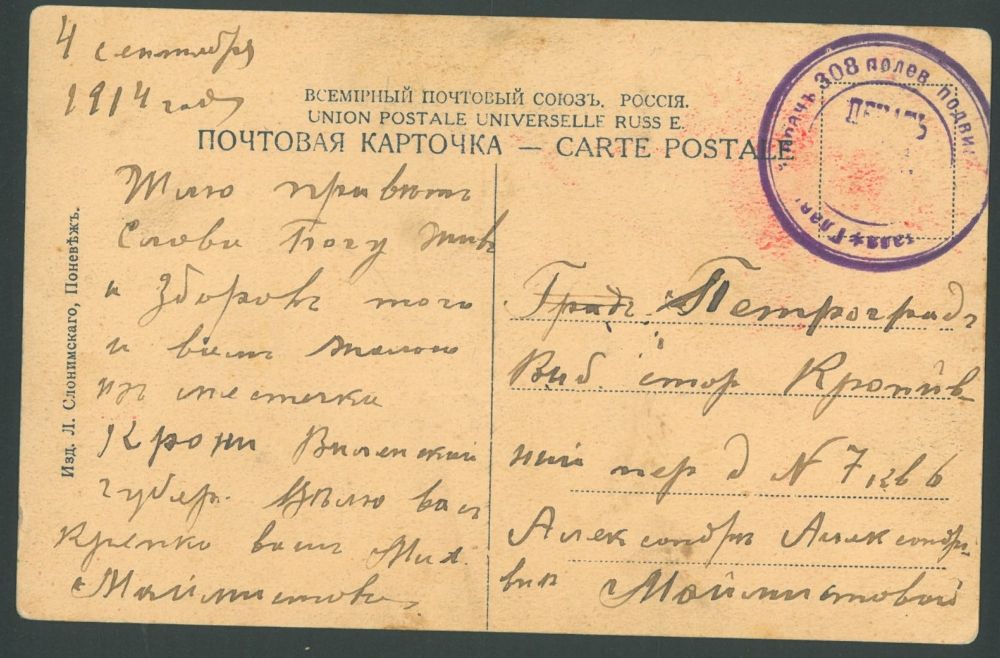 4 сентября
1914 года
ВСЕМІРНЫЙ ПОЧТОВЫЙ СОЮЗЪ. РОССІЯ.
UNION POSTALE UNIVERSELLE RUSS E.
ПОЧТОВАЯ КАРТОЧКА — CARTE POSTALE
308 полев. подвиж
ПЕЧАТЬ
Изд. Л. Слонимскаго, Поневѣжъ.
Шлю привет
Слова Богу жив
и Здоровъ того
и вам желаю
из местечка
Крони Виленский
губер. Цѣлую вас
крепко ваш Мих.
Маймистовъ
Градъ Петроградъ
Виб. стор. Кропив
ний пер д N 7 кв 6
Александръ Александро
вне Маймистовой